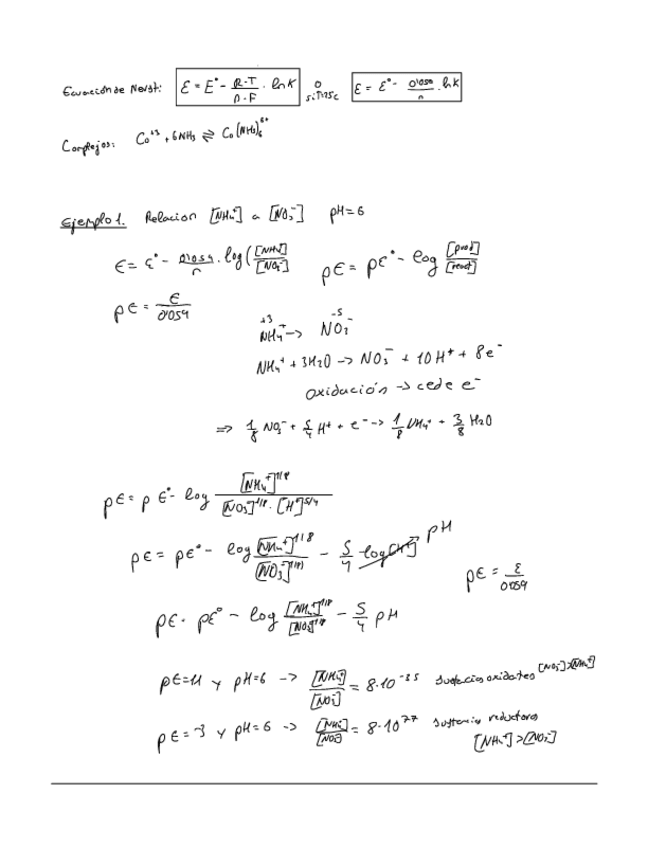 Ecuación de Nernst: E = E° - R·T / n·F · ln K o si T=25c E = E° - 0'059 / n · ln K
Complejos: Co⁺³ + 6NH₃ ⇌ Co(NH₃)₆³⁺
Ejemplo 1. Relacion [NH₄⁺] a [NO₃⁻] pH=6
E = E° - 0'059 / n · log ([NH₄⁺] / [NO₃⁻] pE = pE° - log [prod] / [react]
pE = E / 0'059
+3 -5
NH₄⁺ -> NO₃⁻
NH₄⁺ + 3H₂O -> NO₃⁻ + 10H⁺ + 8e⁻
oxidación -> cede e⁻
=> 1/8 NO₃⁻ + 5/4 H⁺ + e⁻ -> 1/8 NH₄⁺ + 3/8 H₂O
pE = pE° - log [NH₄⁺]^1/8 / [NO₃⁻]^1/8 · [H⁺]^5/4
pE = pE° - log [NH₄⁺]^1/8 / [NO₃⁻]^1/8 - 5/4 log[H⁺] pH
pE = E / 0'059
pE = pE° - log [NH₄⁺]^1/8 / [NO₃⁻]^1/8 - 5/4 pH
pE=11 y pH=6 -> [NH₄⁺] / [NO₃⁻] = 8·10⁻³⁵ sustancias oxidantes [NO₃⁻]>[NH₄⁺]
pE=-3 y pH=6 -> [NH₄⁺] / [NO₃⁻] = 8·10⁷⁷ sustancias reductoras
[NH₄⁺]>[NO₃⁻]